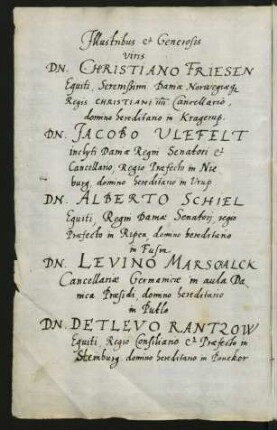 Illustribus et Generosis
viris
DN. CHRISTIANO FRIESEN
Equiti, Serenissimi Daniæ Norwegiæq;
Regis CHRISTIANI IIII. Cancellario,
domino hereditario in Kragerup.
DN. JACOBO ULEFELT
inclyti Daniæ Regni Senatori et
Cancellario, Regio Præfecto in Nie
burg, domino hereditario in Urup
DN. ALBERTO SCHIEL
Equiti, Regni Daniæ Senatori, regio
Præfecto in Ripen, domino hereditario
in Fusin
DN. LEVINO MARSCALCK
Cancellariæ Germanicæ in aula Da
nica Præsidi, domino hereditario
in Putlo
DN. DETLEVO RANTZOW
Equiti, Regio Consiliario et Præfecto in
Stemburg, domino hereditario in Panckor